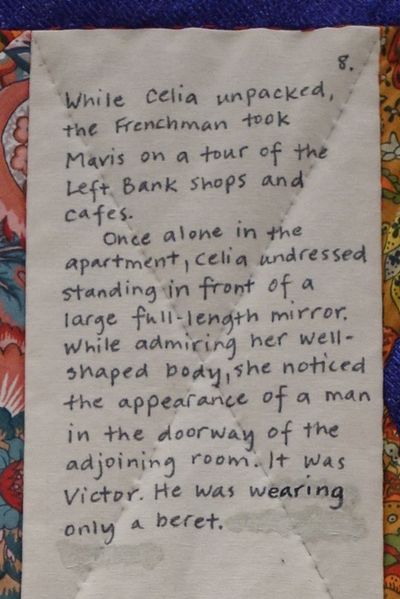 8.
While Celia unpacked,
the Frenchman took
Mavis on a tour of the
Left Bank shops and
cafes.
Once alone in the
apartment, Celia undressed
standing in front of a
large full-length mirror.
While admiring her well-
shaped body, she noticed
the appearance of a man
in the doorway of the
adjoining room. It was
Victor. He was wearing
only a beret.